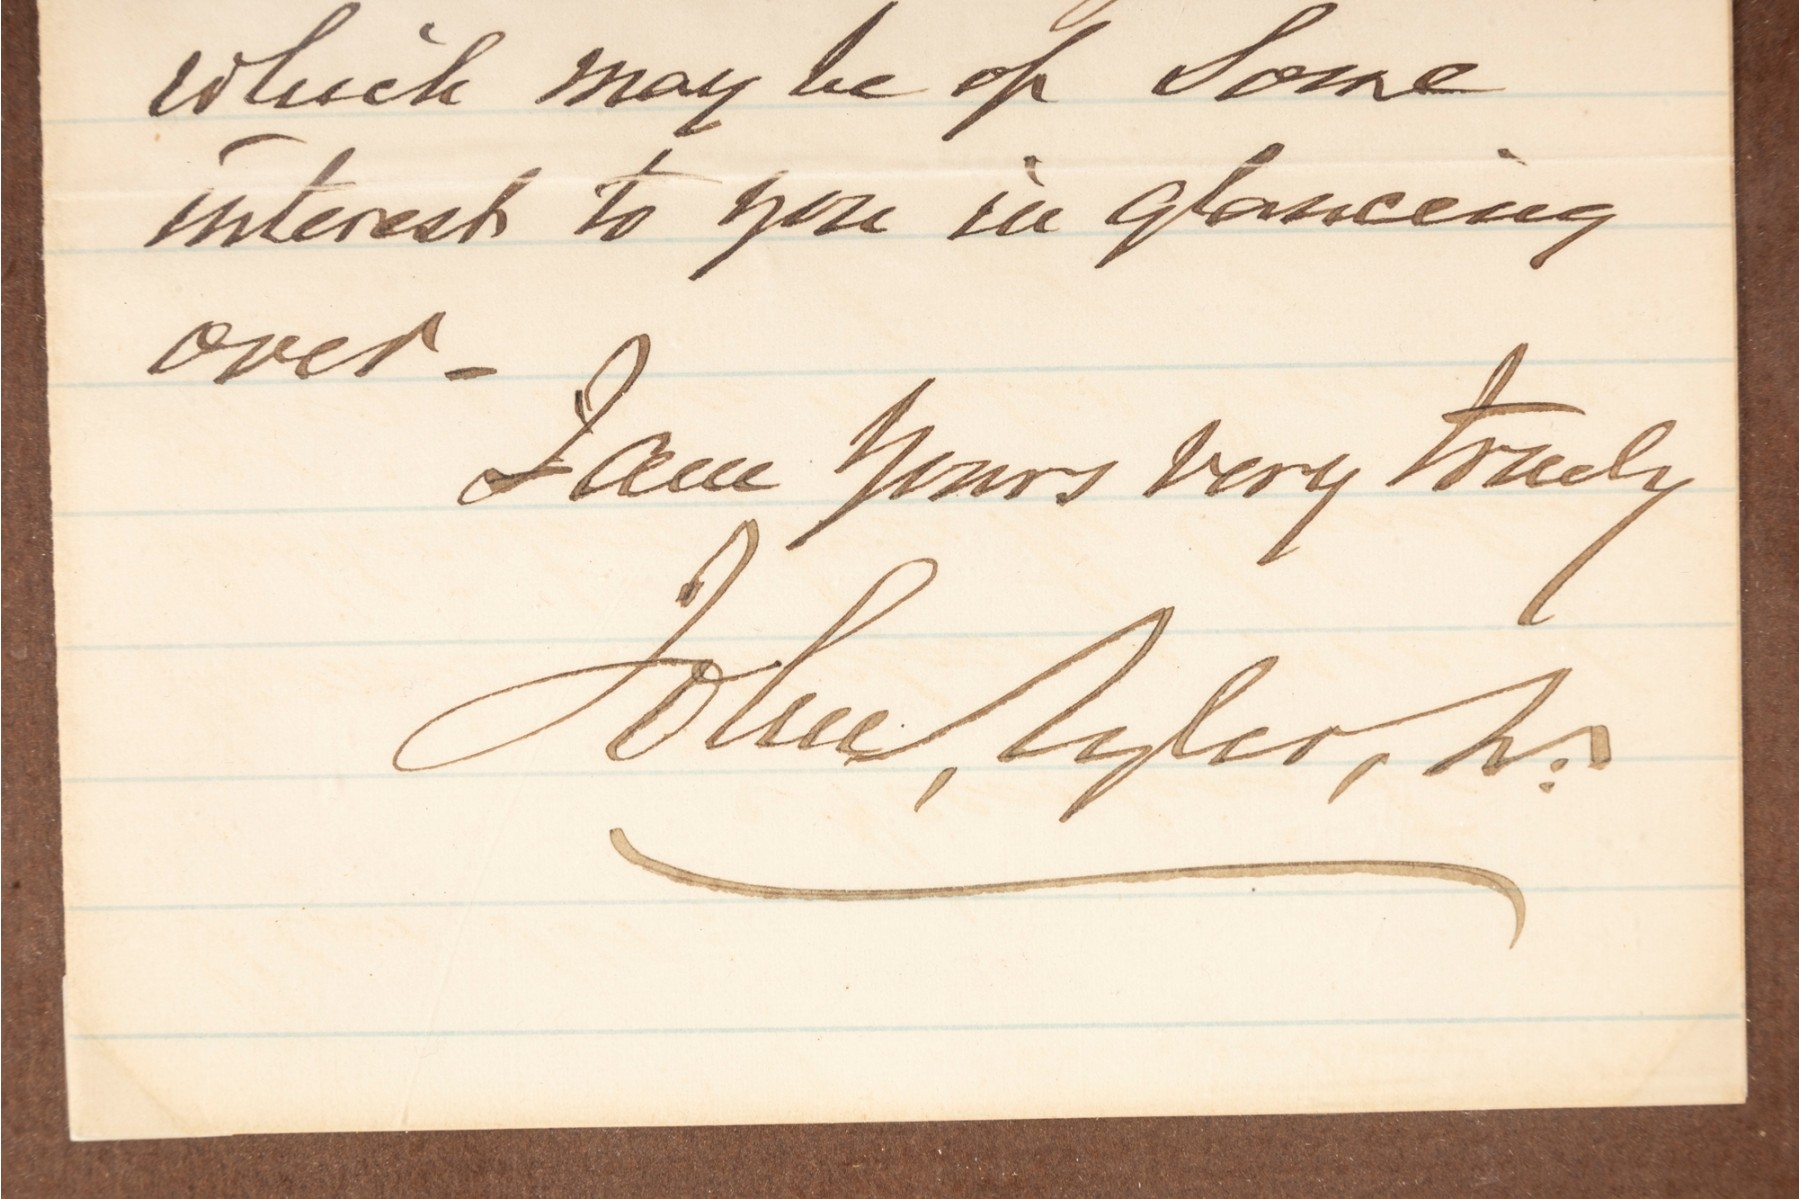 which may be of some
interest to you in glancing
over -
I am yours very truly
John, Tyler, Jr.